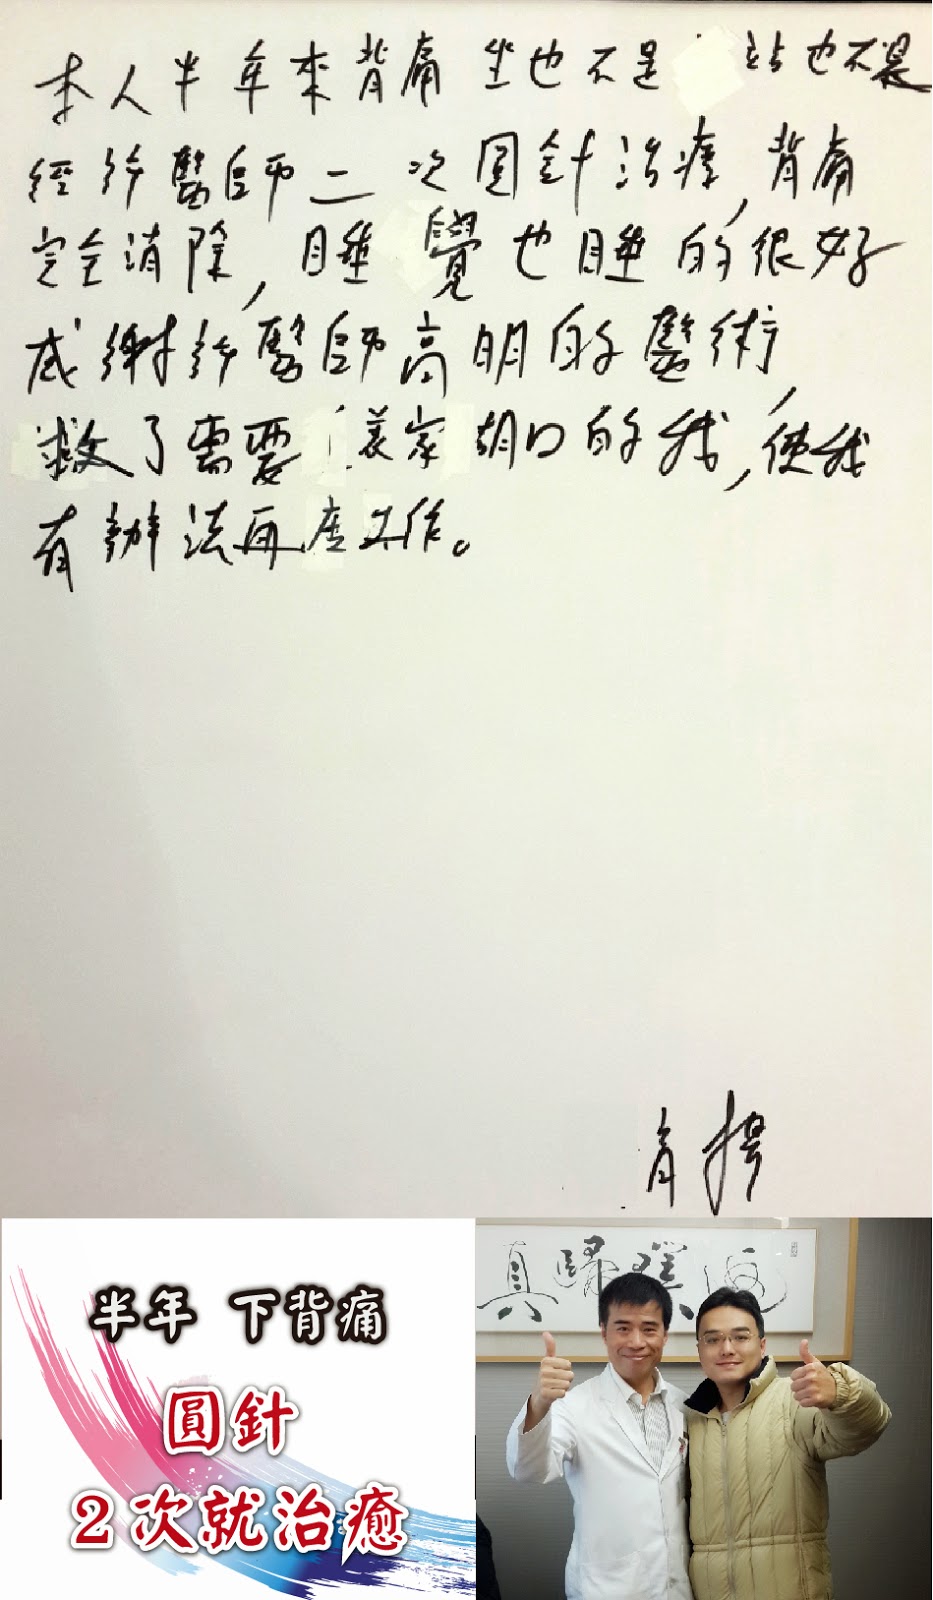 本人半年來背痛 坐也不是 站也不是
經許醫師二次圓針治療,背痛
完全消除,睡覺也睡的很好
感謝許醫師高明的醫術,
救了需要養家胡口的我,使我
有辦法再度工作。
半年 下背痛
圓針
2次就治癒
真歸璞返